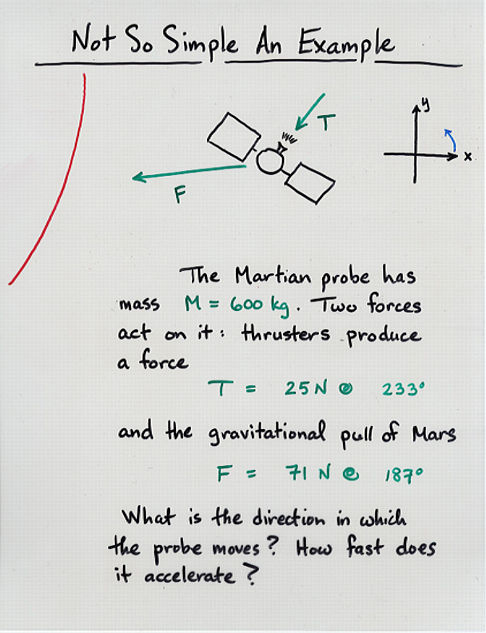 Not So Simple An Example
T
F
y
x
The Martian probe has
mass M = 600 kg. Two forces
act on it: thrusters produce
a force
T = 25 N @ 233°
and the gravitational pull of Mars
F = 71 N @ 187°
What is the direction in which
the probe moves? How fast does
it accelerate?